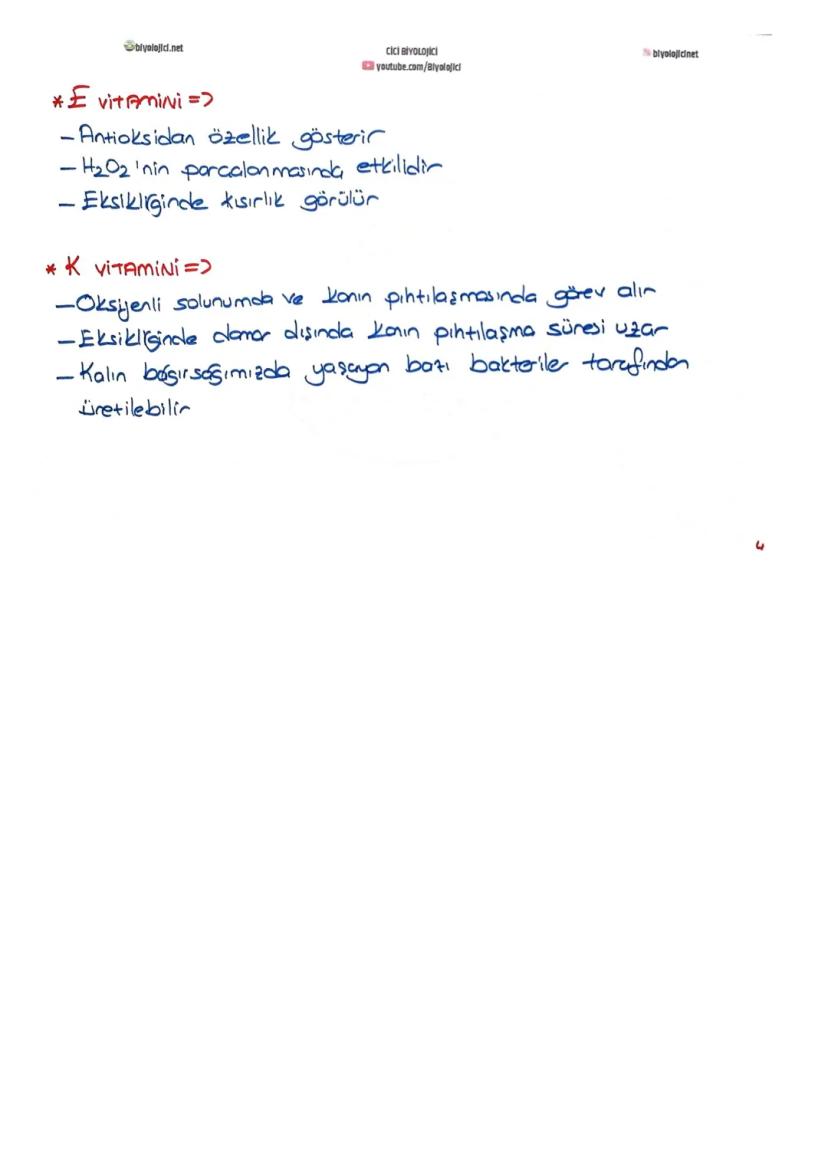 biyolojici.net
CİCİ BİYOLOJİCİ
youtube.com/Biyolojici
biyolojicinet
* E vitamini =>
- Antioksidan özellik gösterir
- H₂O₂'nin parçalanmasında etkilidir
- Eksikliğinde kısırlık görülür
* K vitamini =>
- Oksijenli solunumda ve kanın pıhtılaşmasında görev alır
- Eksikliğinde damar dışında kanın pıhtılaşma süresi uzar
- Kalın bağırsağımızda yaşayan bazı bakteriler tarafından
üretilebilir
4